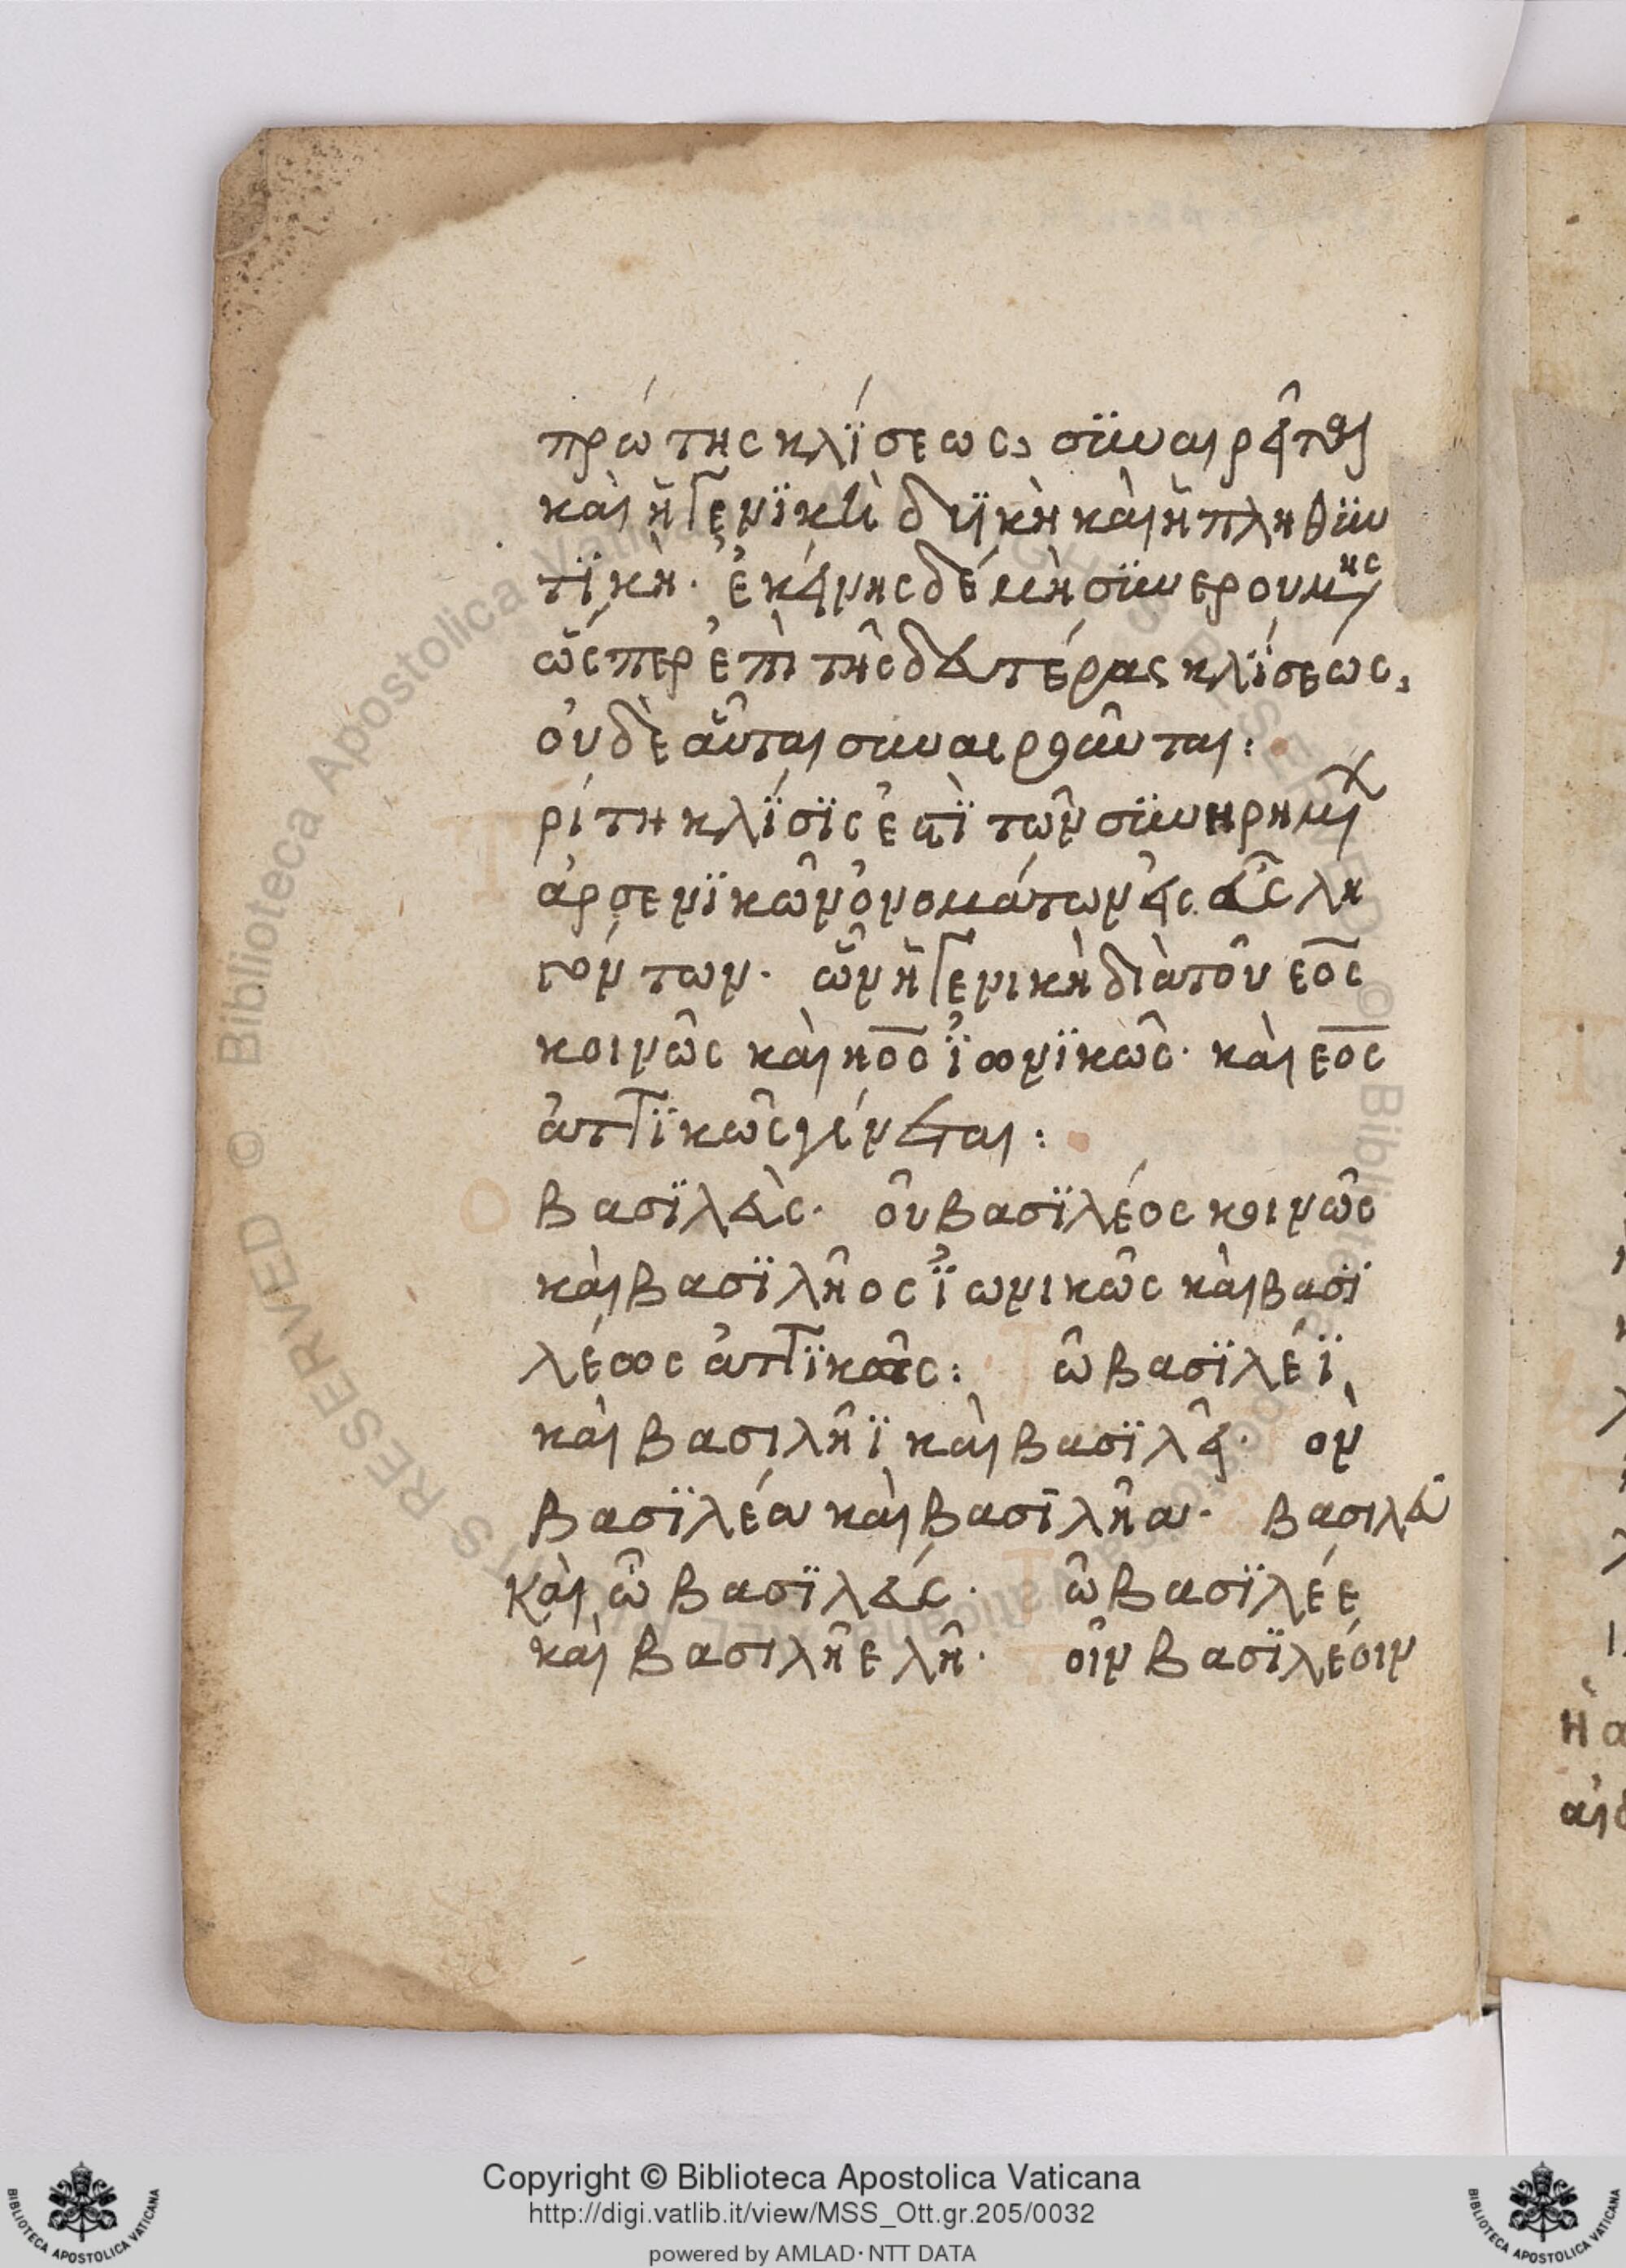 πρώτης κλΐσεως, σϋναιρεῖται
καὶ ἡ γενϊκὴ δυϊκὴ καὶ ἡ πληθϋν
τϊκὴ. ἐκείνης δέ μὴ σϋνερουμένης
ὥσπερ ἐπὶ τῆς δευτέρας κλΐσεώς,
οὐδὲ αὗται συναιροῦνται:
Τρίτη κλΐσϊς ἐστὶ τῶν σϋνηρημένων
ἀρσενϊκῶν ὀνομάτων εἰς εὺς λη
γόντων. ὧν ἡ γενικὴ διὰ τοῦ εος
κοινῶς καὶ ηος ἰωνϊκῶς. καὶ εως
ἀττϊκῶς γίνεται:
Ὁ βασϊλεὺς. οῦ βασϊλέος κοινῶς
καὶ βασϊλῆος ἰωνικῶς καὶ βασϊ
λέως ἀττϊκῶς: Τῶ βασϊλέϊ
καὶ βασιλῆϊ καὶ βασϊλεῖ. Τὸν
βασϊλέα καὶ βασϊλῆα. βασιλεῦ
καὶ ὦ βασϊλεύς. Τῶ βασϊλέε
καὶ βασιλῆε λῆ. Τοῖν βασϊλέοιν
Copyright © Biblioteca Apostolica Vaticana
http://digi.vatlib.it/view/MSS_Ott.gr.205/0032
powered by AMLAD·NTT DATA